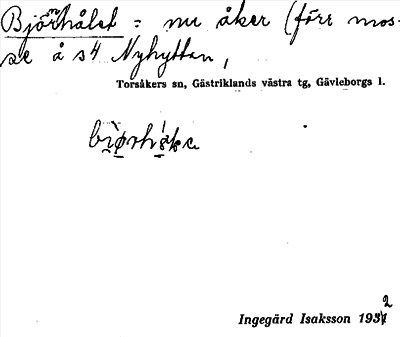 Björnhålet = nu åker (förr mos-
se å s4 Nyhyttan,
Torsåkers sn, Gästriklands västra tg, Gävleborgs l.
Ingegärd Isaksson 1932